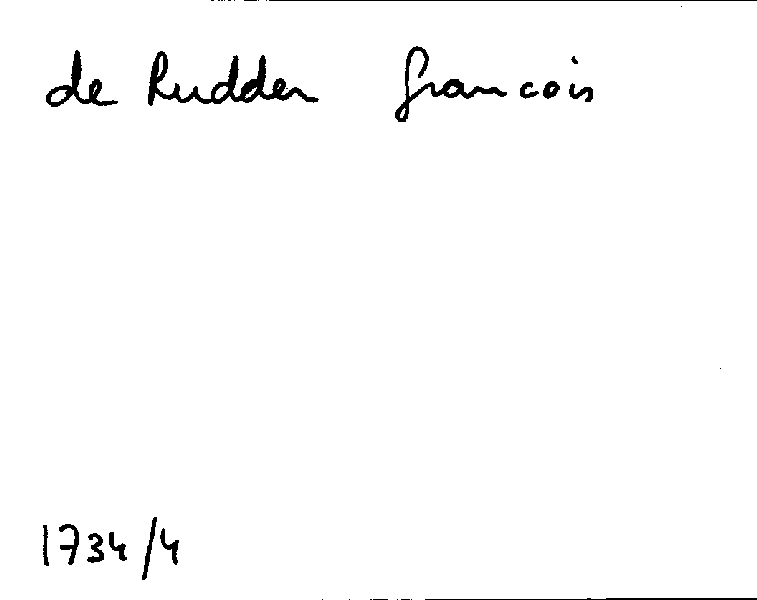 de Rudder francois
1734/4